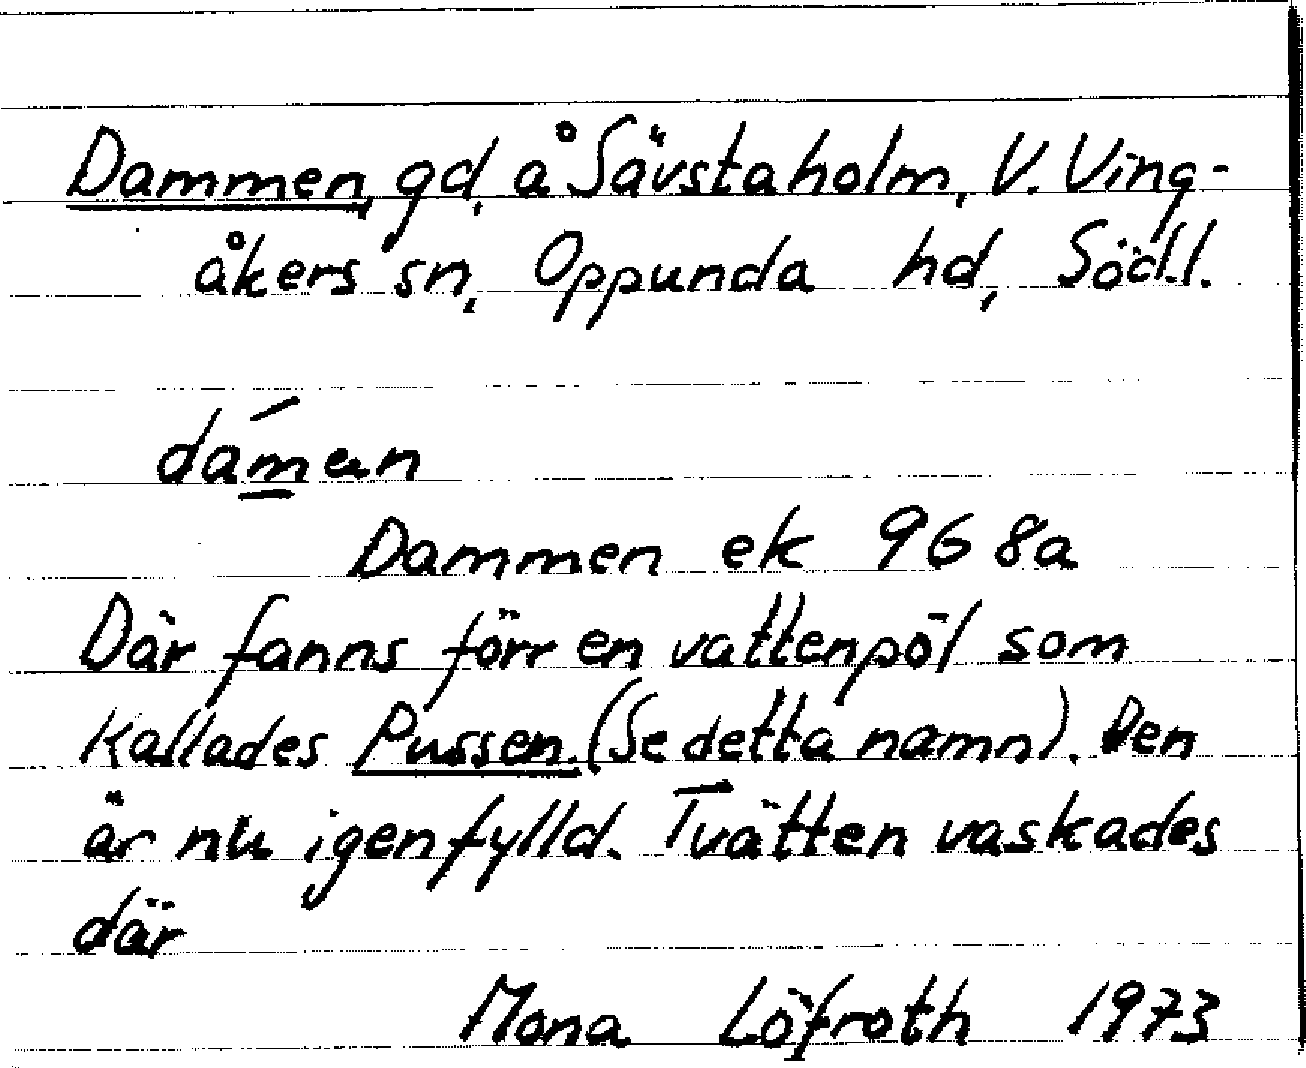 Dammen, gd, å Sävstaholm, V. Ving-
åkers sn, Oppunda hd, Södl.
Dammen ek 9G 8a
Där fanns förr en vattenpöl som
kallades Pussen. (Se detta namn). Den
är nu igenfylld. Tvätten vaskades
där
Mona Löfroth 1973